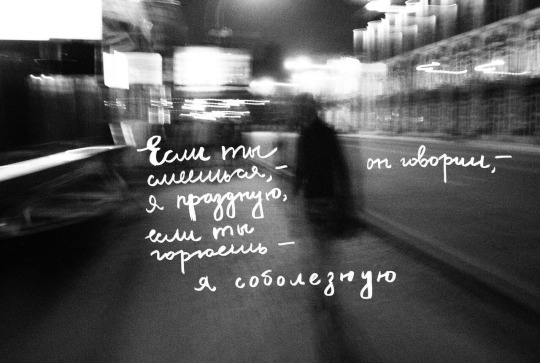 Если ты
смеешься,–
он говорит,–
я праздную,
если ты
горюешь –
я соболезную